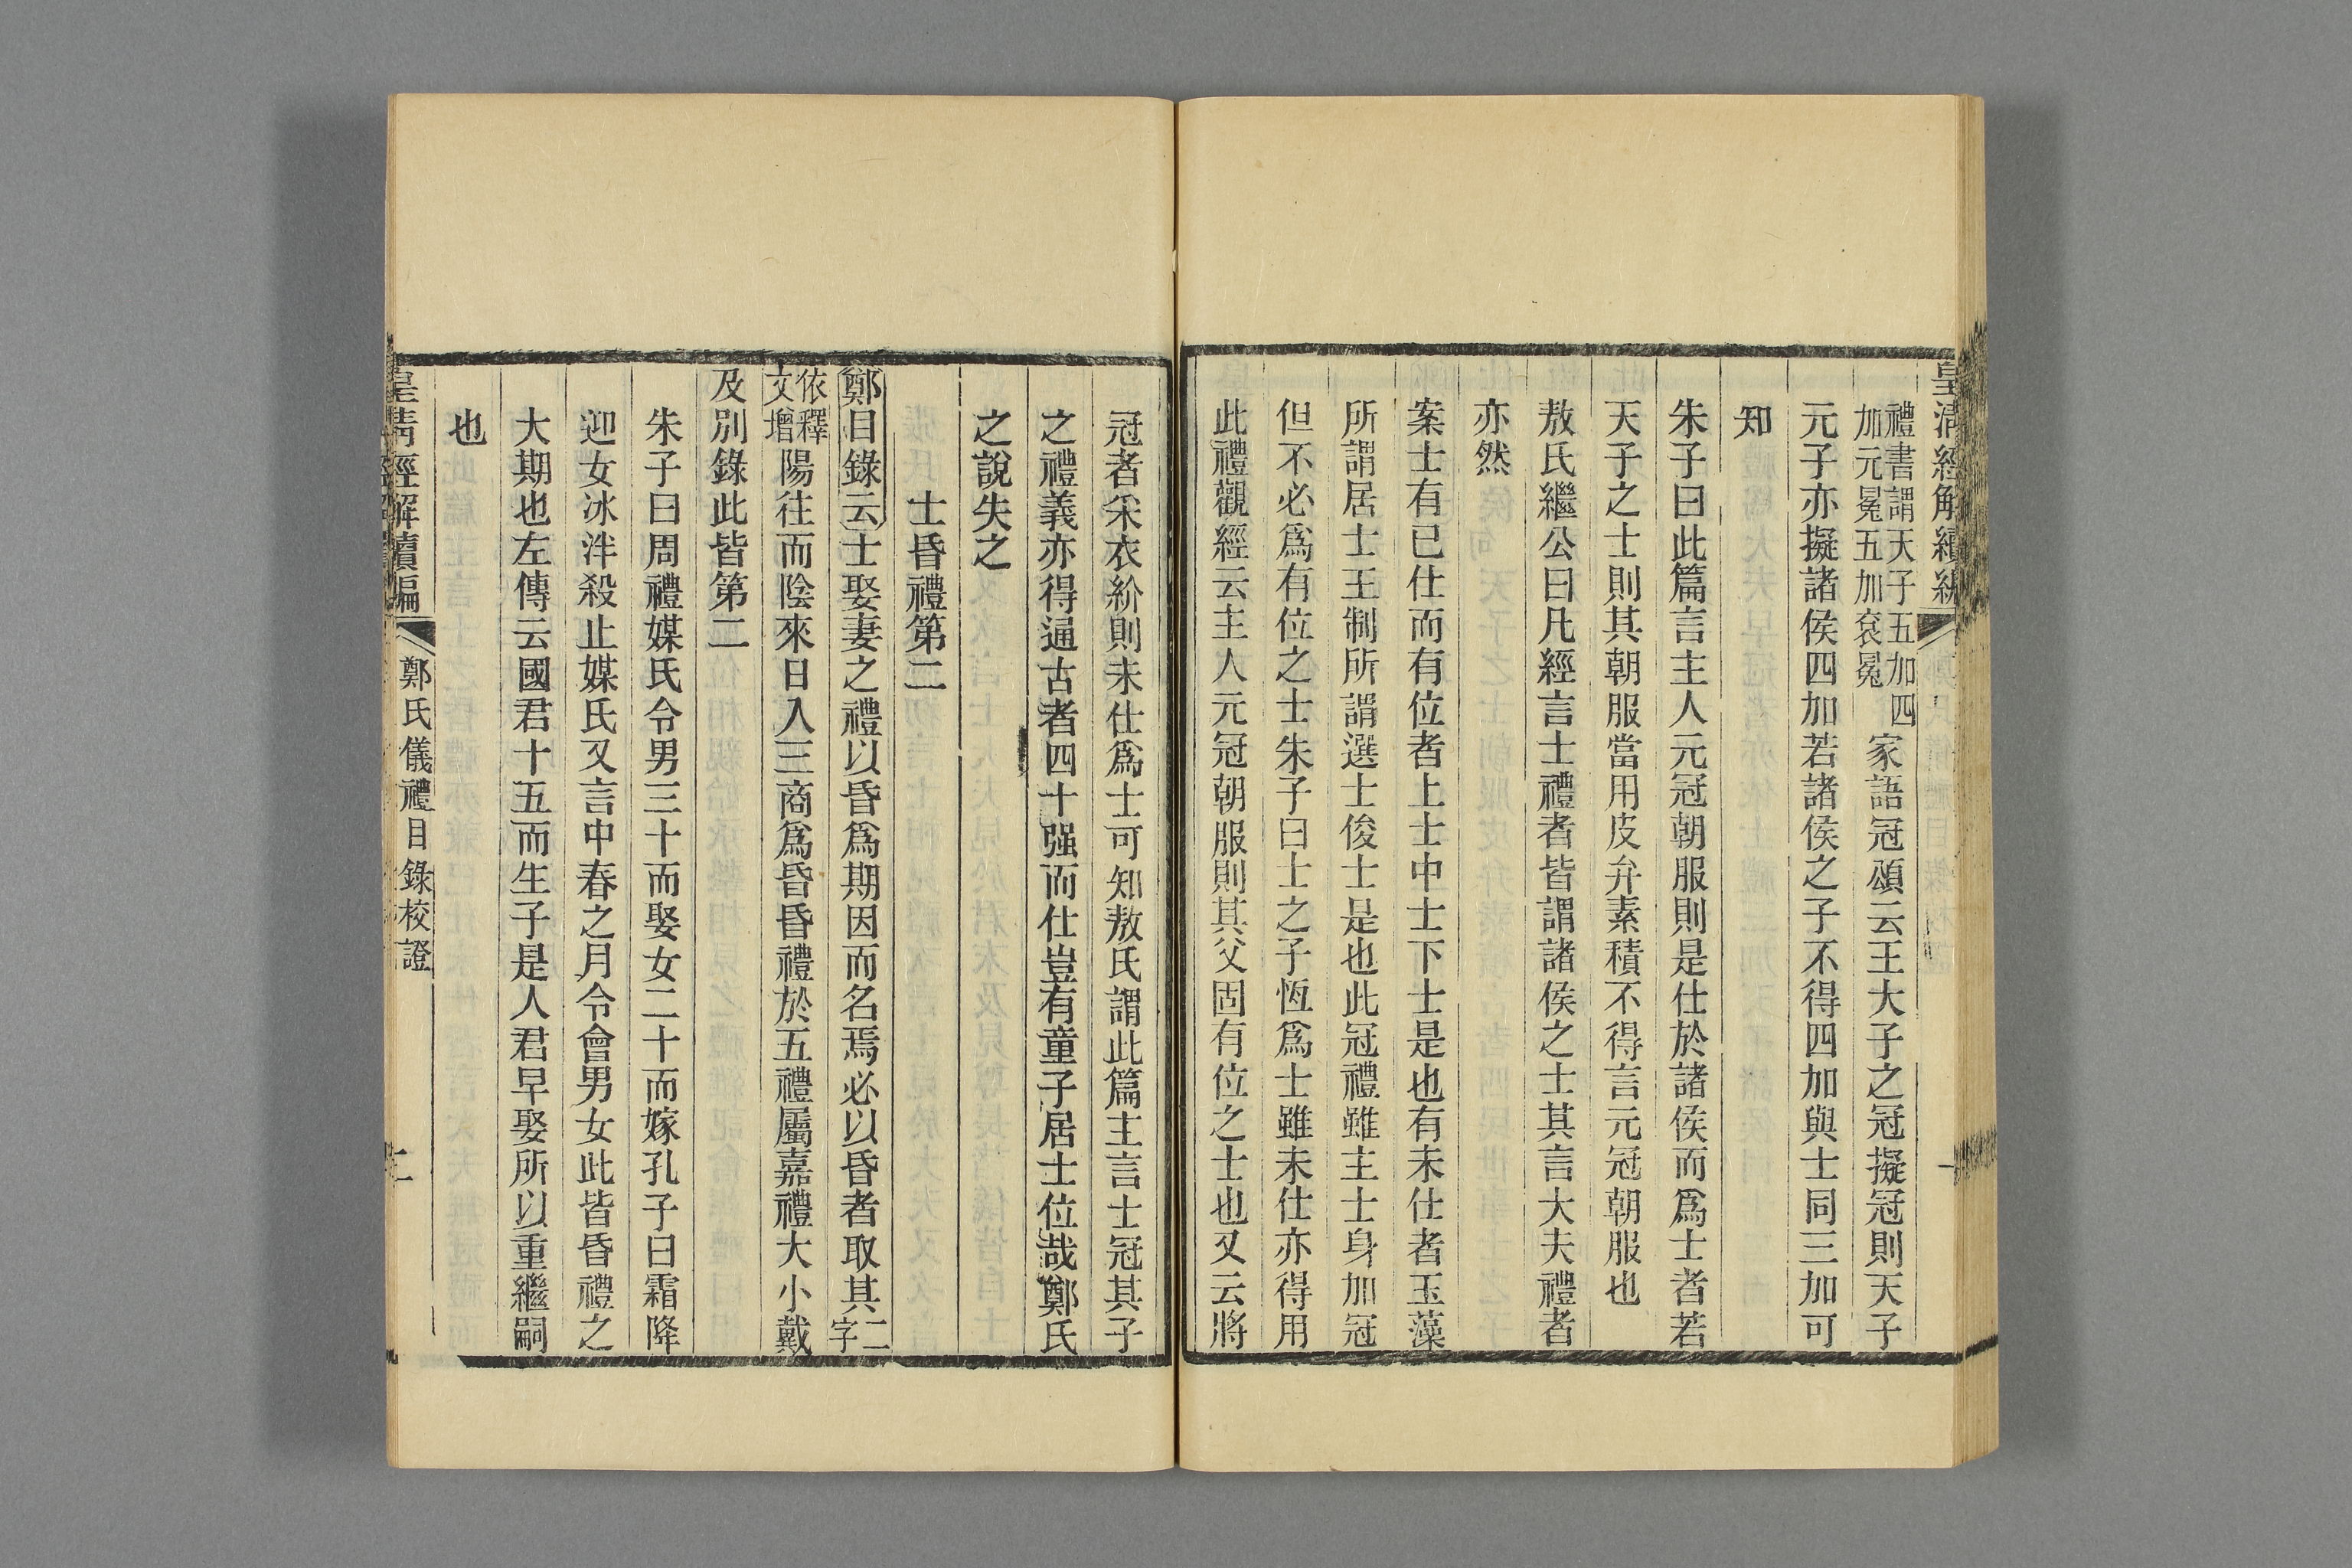 皇清經解續編
禮書謂天子五加四
加元冕五加袞冕
家語冠頌云王大子之冠擬冠則天子
元子亦擬諸侯四加若諸侯之子不得四加與士同三加可
知
朱子曰此篇言主人元冠朝服則是仕於諸侯而爲士者若
天子之士則其朝服當用皮弁素積不得言元冠朝服也
敖氏繼公曰凡經言士禮者皆謂諸侯之士其言大夫禮者
亦然
案士有已仕而有位者上士中士下士是也有未仕者玉藻
所謂居士王制所謂選士俊士是也此冠禮雖主士身加冠
但不必爲有位之士朱子曰士之子恆爲士雖未仕亦得用
此禮觀經云主人元冠朝服則其父固有位之士也又云將
冠者采衣紒則未仕爲士可知敖氏謂此篇主言士冠其子
之禮義亦得通古者四十强而仕豈有童子居士位哉鄭氏
之說失之
士昏禮第二
鄭目錄云士娶妻之禮以昏爲期因而名焉必以昏者取其二字
依釋文增陽往而陰來日入三商爲昏昏禮於五禮屬嘉禮大小戴
及別錄此皆第二
朱子曰周禮媒氏令男三十而娶女二十而嫁孔子曰霜降
迎女冰泮殺止媒氏又言中春之月令會男女此皆昏禮之
大期也左傳云國君十五而生子是人君早娶所以重繼嗣
也
皇清經解續編
鄭氏儀禮目錄校證
二